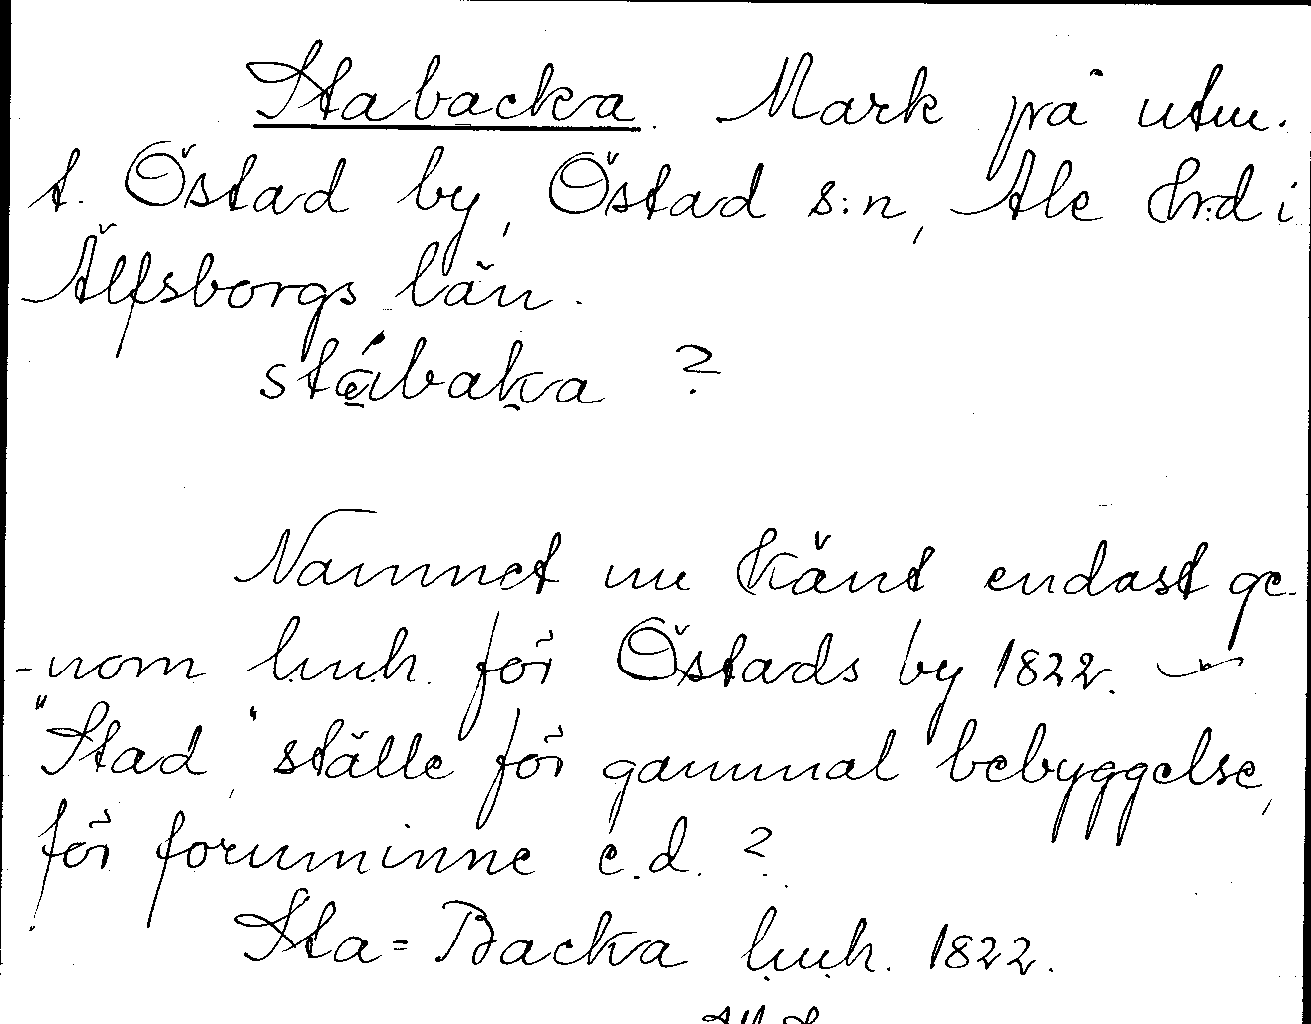 Stabacka. Mark på utm.
t. Östad by, Östad s:n, Ale hrd i
Älfsborgs län.
stábaka ?
Namnet nu känt endast ge-
-nom l.u.h. för Östads by 1822. –
"Stad", ställe för gammal bebyggelse,
för fornminne e.d. ?
Sta=Backa l.u.h. 1822.